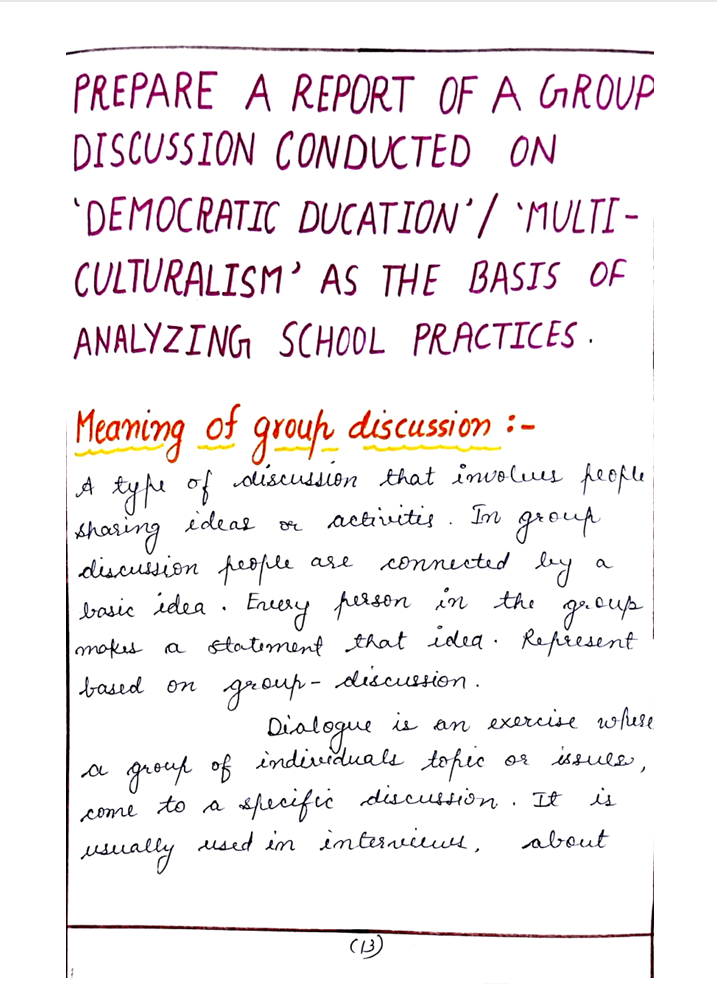 PREPARE A REPORT OF A GROUP
DISCUSSION CONDUCTED ON
'DEMOCRATIC DUCATION' / 'MULTI-
CULTURALISM' AS THE BASIS OF
ANALYZING SCHOOL PRACTICES.
Meaning of group discussion :-
A type of discussion that involves people
sharing ideas or activitis. In group
discussion people are connected by a
basic idea. Every person in the group
makes a statement that idea. Represent
based on group-discussion.
Dialogue is an exercise where
a group of individuals topic or issues,
come to a specific discussion. It is
usually used in interviews, about
(13)